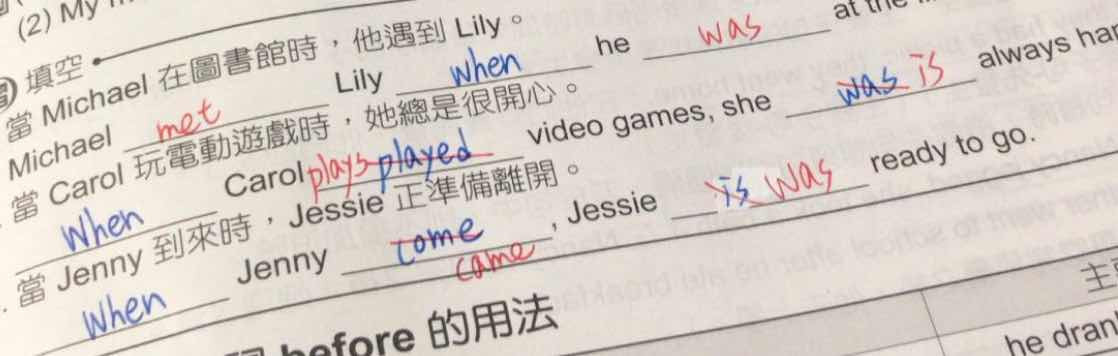 (2) My
填空
當 Michael 在圖書館時，他遇到 Lily。
Michael met Lily when he was at the
當 Carol 玩電動遊戲時，她總是很開心。
When Carol plays played video games, she was is always
當 Jenny 到來時，Jessie 正準備離開。
When Jenny come came, Jessie is was ready to go.
before 的用法
he drank